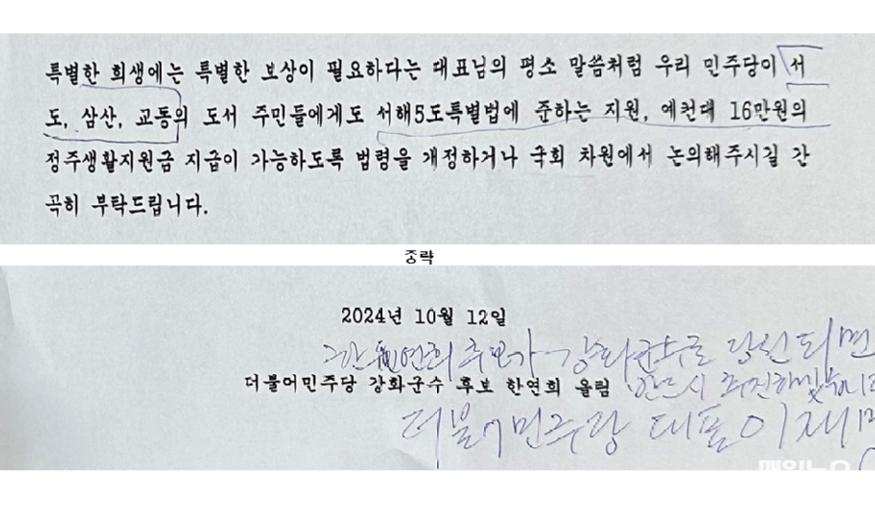 특별한 희생에는 특별한 보상이 필요하다는 대표님의 평소 말씀처럼 우리 민주당이 서
도, 삼산, 교동의 도서 주민들에게도 서해5도특별법에 준하는 지원, 예컨대 16만원의
정주생활지원금 지급이 가능하도록 법령을 개정하거나 국회 차원에서 논의해주시길 간
곡히 부탁드립니다.
중략
2024년 10월 12일
한연희 후보가 강화군수로 당선되면
더불어민주당 강화군수 후보 한연희 올림
반드시 추진하겠습니다
더불어민주당 대표 이재명